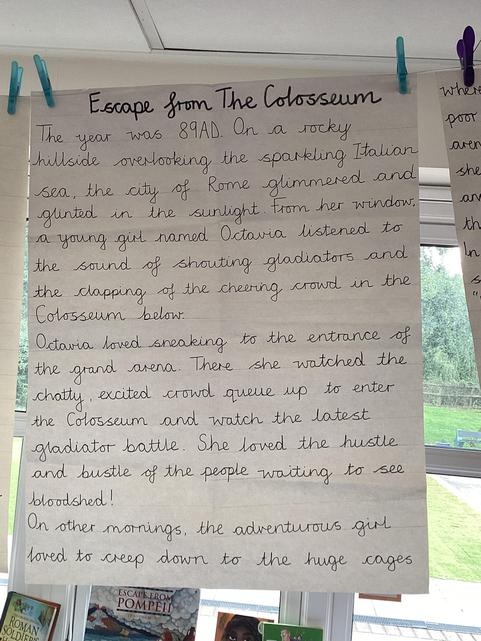 Escape from The Colosseum
The year was 89AD. On a rocky
hillside overlooking the sparkling Italian
sea, the city of Rome glimmered and
glinted in the sunlight. From her window,
a young girl named Octavia listened to
the sound of shouting gladiators and
the clapping of the cheering crowd in the
Colosseum below.
Octavia loved sneaking to the entrance of
the grand arena. There she watched the
chatty, excited crowd queue up to enter
the Colosseum and watch the latest
gladiator battle. She loved the hustle
and bustle of the people waiting to see
bloodshed!
On other mornings, the adventurous girl
loved to creep down to the huge cages
where
poor
she
In
ESCAPE FROM
POMPEII
ROMAN
SOLDIER'S